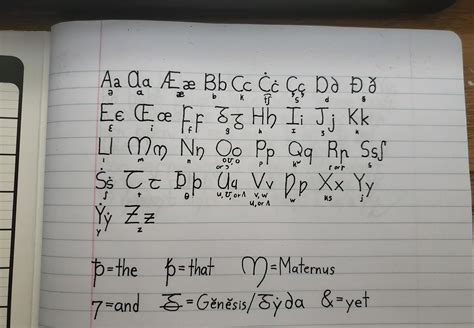 Aa Ɑɑ Ææ Bb Cc Ċċ Çç Dꝺ Ðð
ə ɑ æ b k tʃ s d ð
Eɛ Œœ Ff Ᵹᵹ Hh Ii Jj Kk
ɛ i f g h ɪ j k
Ll Mm Nn Oo Pp Qq Rꞃ Ssſ
l m n p kʷ s
Ṡṡ Ττ Þþ Uu Vv Ƿƿ Xx Yy
ʃ t θ u, ʊ, or ʌ v, w w ks j
u, ʊ, or ʌ
Ẏẏ Zz
y z
ꝥ=the ꝥ=that M=Maternus
⁊=and Ᵹ=Gĕnĕsis/Ᵹẏꝺa &=yet